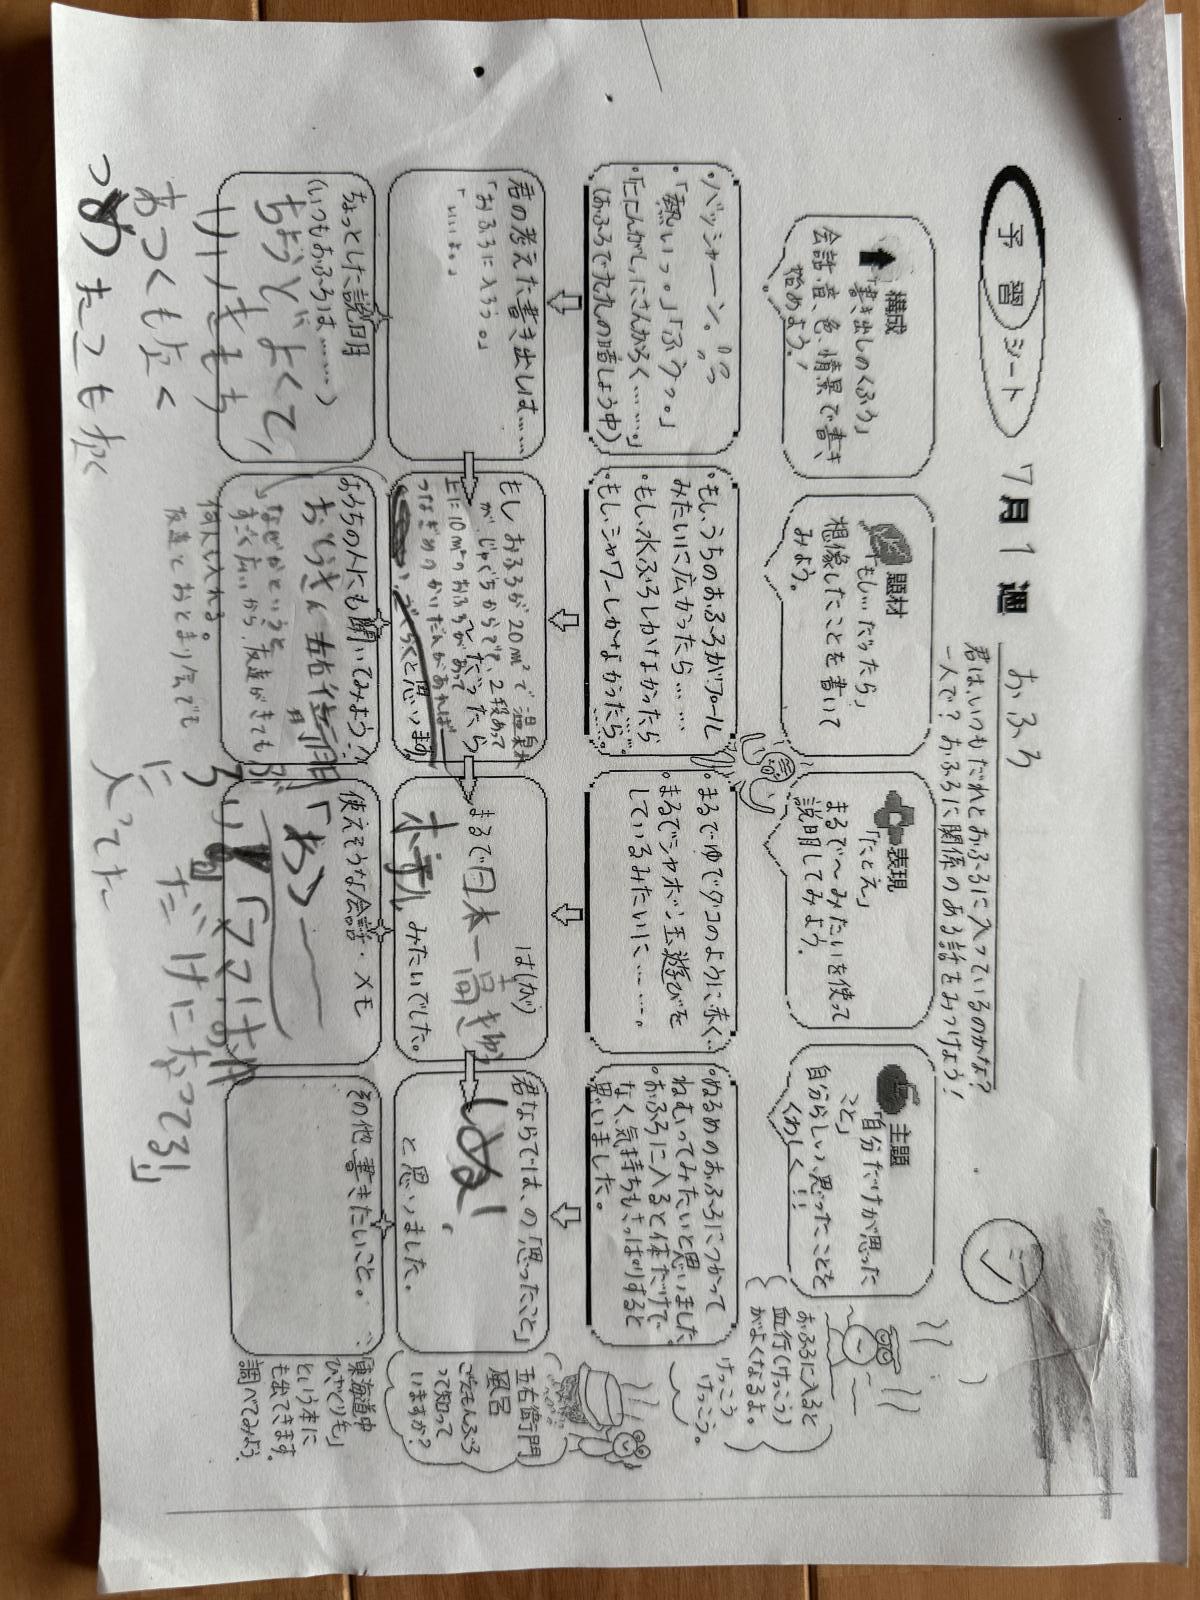 予習シート
7月1週
おふろ
君は、いつもだれとおふろに入っているのかな?
一人で?おふろに関係のある話をみつけよう!
構成
「書き出しのくふう」
会話、音、色、情景で書き
始めよう!
題材
「もし…だったら」
想像したことを書いて
みよう。
表現
「たとえ」
まるで〜みたいを使って
説明してみよう。
主題
「自分だけが思った
こと」
自分らしい、思ったことを
くわしく!!
おふろに入ると
血行(けっこう)
がよくなるよ。
けっこう
けっこう。
・バッシャーン。
・「熱いっ。」「ふうっ。」
・「ににんがし、にさんがろく……。」
(おふろで九九の暗しょう中)
・もし、うちのおふろがプール
みたいに広かったら……
・もし、水ぶろしかなかったら
・もし、シャワーしかなかったら…
・まるでゆでダコのように赤く…
・まるでシャボン玉遊びを
しているみたいに……。
・ぬるめのおふろにつかって
ねむってみたいと思いました
・おふろに入ると体だけで
なく、気持ちもさっぱりすると
思いました。
君の考えた書き出しは……
「おふろに入ろう。」
「いいよ。」
もしおふろが20m²で温泉
が、じゃぐちからでて、2段あって
上に10m²のおふろがあって
だったら
ごくらくと思います
は(が)
まるで日本一高き
ホテル
みたいでした。
君ならでは、の「思ったこと」
と思いました。
五右衛門
風呂
ごえもんぶろ
って知って
いますか?
ちょっとした説明
(いつもおふろは……)
ちょうどよくて、
あつくもなく
つめたくもなく
おうちの人にも聞いてみよう!
なぜかというと
すごく広いから、友達がきても
何人も入れる。
友達とおとまり会でも
使えそうな会話・メモ
「あつ
だけになってる!」
その他、書きたいこと。
「東海道中
ひざくり毛」
という本に
も出てきます。
調べてみよう。